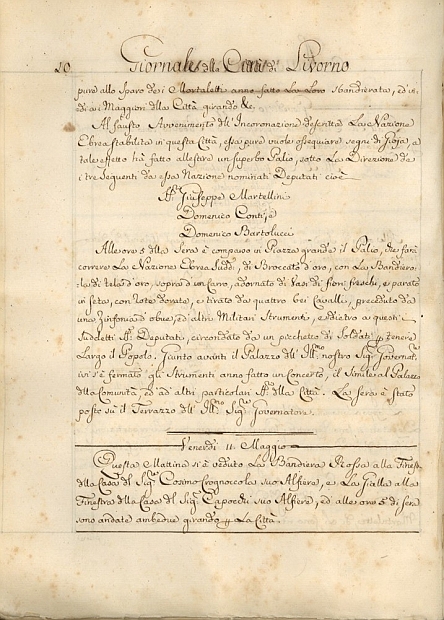 20 Giornale della Città di Livorno
pure allo sparo dei Mortaletti anno fatto La Loro Sbandierata, ed'in
di ai Maggiori della Città girando &c.
Al fausto Avvenimento dell'Incoronazione descritta La Nazione
Ebrea stabilita in questa Città, essa pure vuole ossequiare segni di Gioja, a
tale effetto hà fatto allestire un superbo Palio, sotto La Direzione de
i tre Seguenti da essa Nazione nominati Deputati cioè
Giuseppe Martellini
Domenico Conti, e
Domenico Bartolucci
Alle ore 5 della Sera è comparso in Piazza grande il Palio, che farà
correre La Nazione Ebrea Sudd., di Broccato d'oro, con La Bandiero-
la di tela d'oro, sopra d'un Carro, adornato di Vasi di fiori freschi, e parato
in seta, con Rote dorate, e tirato da quattro bei Cavalli, preceduto da
una Zinfonia d'obue, ed'altri Militari Strumenti, e dietro a questi
Suddetti Deputati, circondato da un picchetto di Soldati p tenere
Largo il Popolo. Giunto avanti il Palazzo dell'Ill.mo nostro Sig.r Governat.e
ivi s'è fermato, gli Strumenti anno fatto un Concerto, il Simile al Palazzo
della Comunità, ed'ad altri particolari della Città. La Sera è stato
posto sù il Terrazzo dell'Ill.mo Sig.r Governatore.
Venerdì 11 Maggio
Questa Mattina si è veduto La Bandiera Rossa alla Finest.
della Casa del Sig.r Cosimo suo Alfiere, e La Gialla alla
Finestra della Casa del Sig.r Capocchi suo Alfiere, ed alle ore 5 di sera
sono andate ambedue girando p La Città.